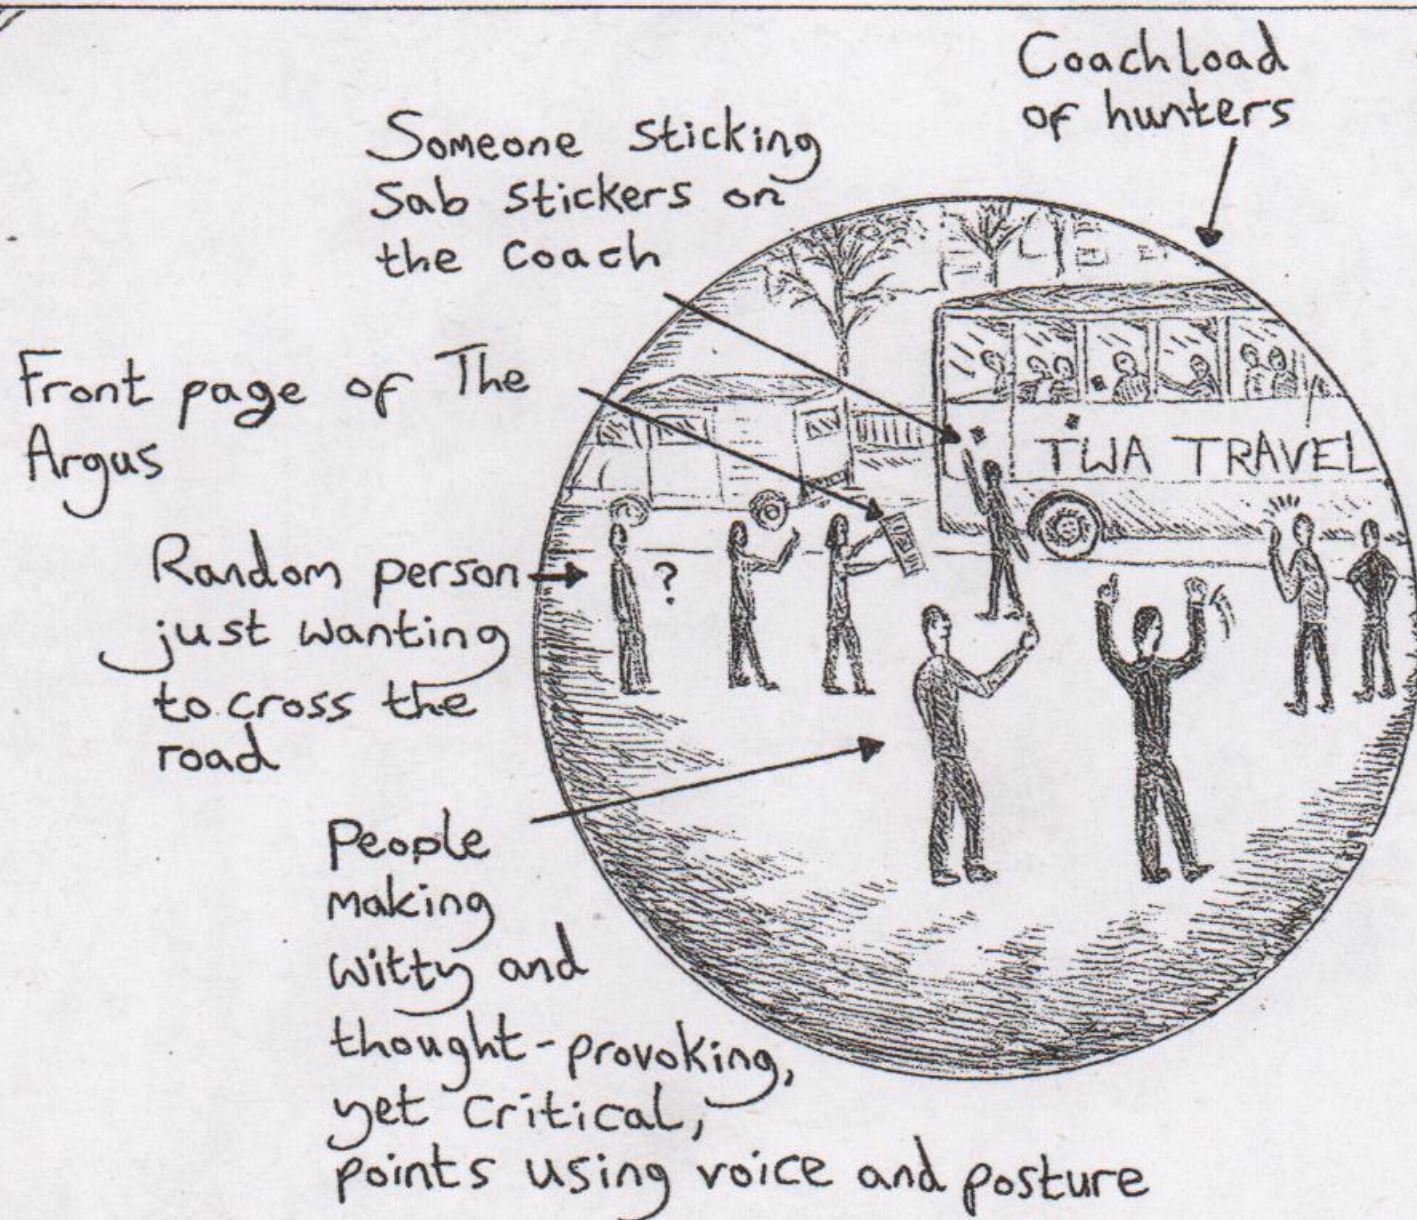 Coachload
of hunters
Someone sticking
Sab stickers on
the coach
Front page of The
Argus
Random person
just wanting
to cross the
road
?
TWA TRAVEL
People
making
witty and
thought-provoking,
yet critical,
points using voice and posture